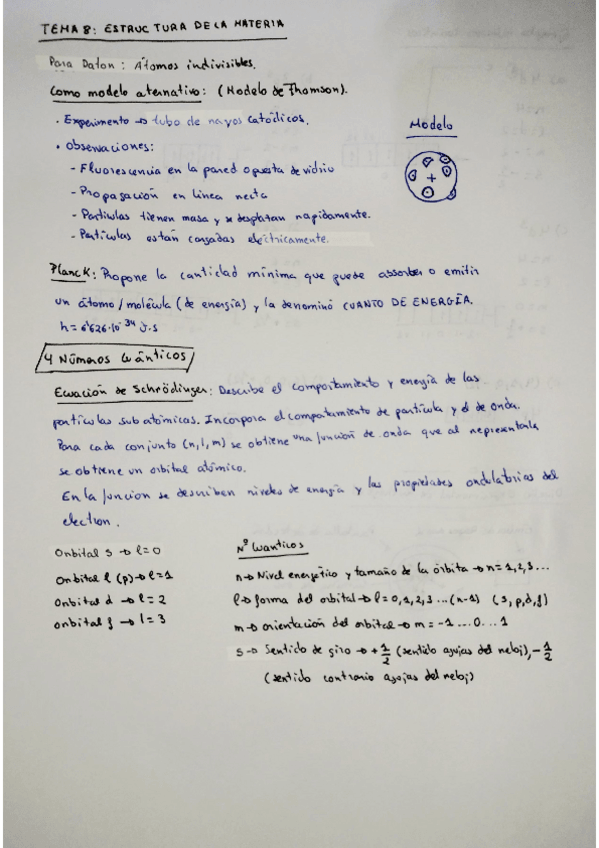 TEMA 8: ESTRUCTURA DE LA MATERIA
Para Dalton: Átomos indivisibles.
Como modelo alternativo: (Modelo de Thomson).
· Experimento → tubo de rayos catódicos.
Modelo
· Observaciones:
- Fluorescencia en la pared opuesta de vidrio
- Propagación en línea recta
- Partículas tienen masa y se desplazan rapidamente.
- Partículas están cargadas eléctricamente.
+
Planck: Propone la cantidad mínima que puede absorber o emitir
un átomo/molécula (de energía) y la denominó CUANTO DE ENERGÍA.
h = 6'626·10⁻³⁴ J·s
4 Números Cuánticos
Ecuación de Schrödinger: Describe el comportamiento y energía de las
partículas subatómicas. Incorpora el comportamiento de partícula y el de onda.
Para cada conjunto (n, l, m) se obtiene una función de onda que al representarla
se obtiene un orbital atómico.
En la función se describen niveles de energía y las propiedades ondulatorias del
electron.
Orbital s → l=0
Orbital l (p) → l=1
Orbital d → l=2
Orbital f → l=3
Nº Cuanticos
n → Nivel energético y tamaño de la órbita → n=1,2,3...
l → forma del orbital → l=0,1,2,3...(n-1) (s,p,d,f)
m → orientación del orbital → m=-1...0...1
s → Sentido de giro → +1/2 (sentido agujas del reloj), -1/2
(sentido contrario agujas del reloj)